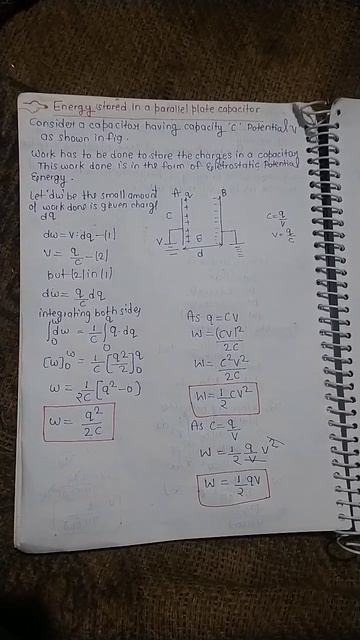 Energy stored in a parallel plate capacitor
Consider a capacitor having capacity 'c'. Potential V
as shown in fig.
Work has to be done to store the charges in a capacitor
This work done is in the form of Eletrostatic Potential
Energy.
Let 'dw' be the small amount
of work done is given charge
dq
A q B
C
V
E
d
C = q/V
V = q/C
dw = V·dq -(1)
V = q/C -(2)
put (2) in (1)
dw = q/C dq
integrating both sides
∫₀ʷ dw = 1/C ∫₀^q q·dq
[w]₀ʷ = 1/C [q²/2]₀^q
w = 1/2C [q²-0)
w = q²/2C
As q = CV
W = (CV)²/2C
W = C²V²/2C
W = 1/2 CV²
As C = q/V
W = 1/2 q/V V²
W = 1/2 qV